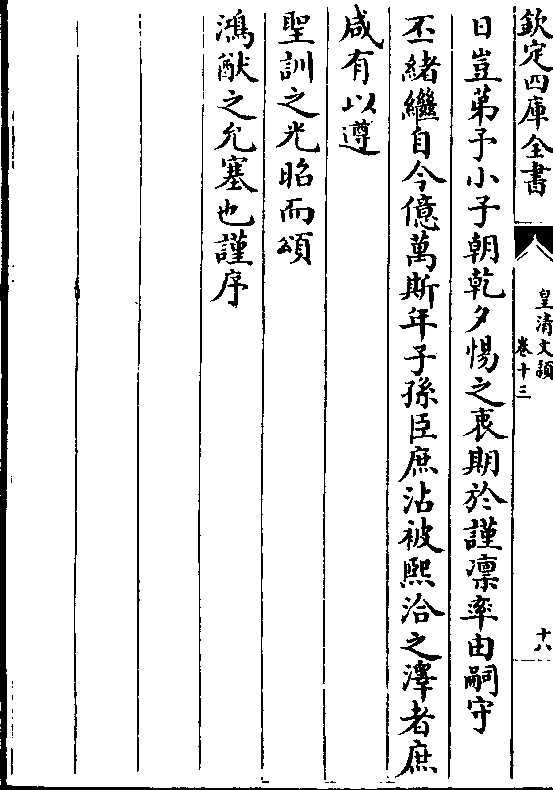 欽定四庫全書
皇清文穎
卷十三
十八
日豈苐予小子朝乾夕惕之衷期於謹凛率由嗣守
丕緒繼自今億萬斯年子孫臣庶沾被熙洽之澤者庶
咸有以遵
聖訓之光昭而頌
鴻猷之允塞也謹序